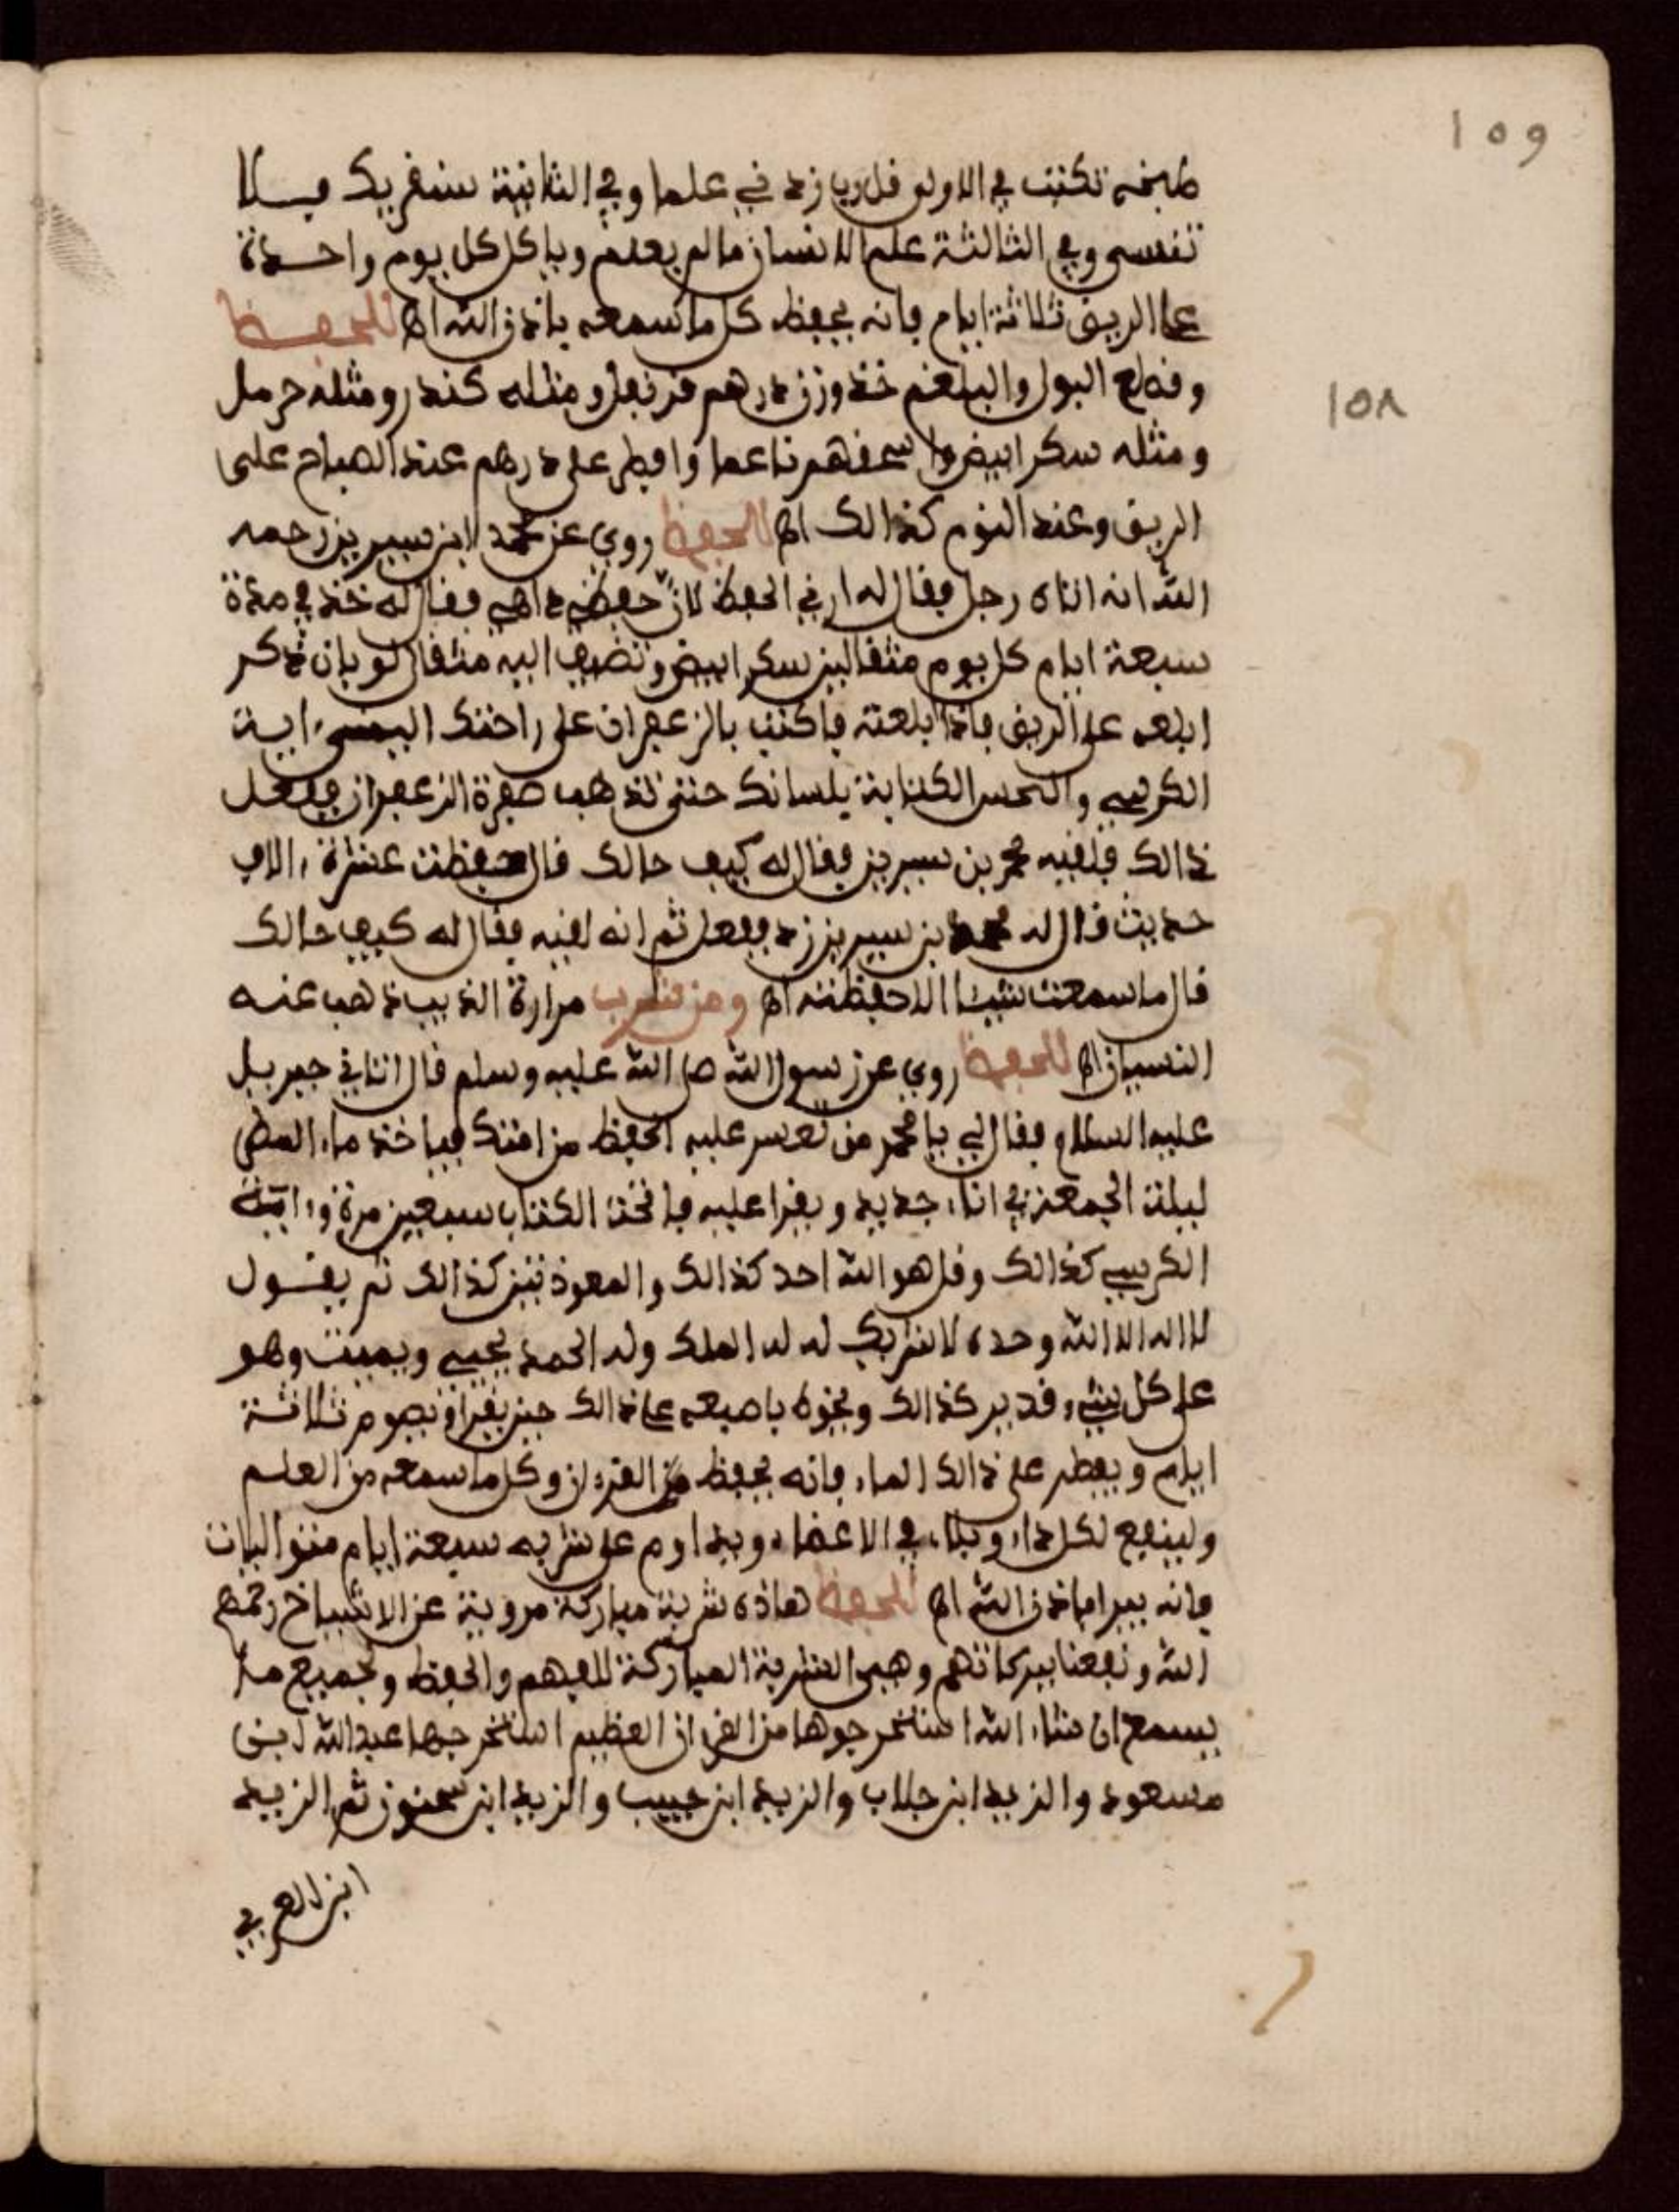 ١٥٩
طبخه تكتب في الاولى قل رب زدني علما وفي الثانية سنقريك فلا
تنسى وفي الثالثة علم الانسان ما لم يعلم وياكل كل يوم واحدة
على الريق ثلاثة ايام فانه يحفظ كل ما سمعه باذن الله اه للحفظ
وقطع البول والبلغم خذ وزن درهم قرنفل ومثله كندر ومثله حرمل
١٥٨
ومثله سكر ابيض واسحقهم ناعما وافطر على درهم عند الصباح على
الريق وعند النوم كذالك اه للحفظ روي عن محمد ابن سيرين رحمه
الله انه اتاه رجل فقال له ارني الحفظ لان حفظي داهي فقال له خذ في مدة
سبعة ايام كل يوم مثقالين سكر ابيض وتضيف اليه مثقال لوبان ذكر
ابلعه على الريق فاذا ابلعته فاكتب بالزعفران على راحتك اليمنى ءاية
الكرسي والحس الكتابة بلسانك حتى تذهب صفرة الزعفران ففعل
ذالك فلقيه محمد بن سيرين فقال له كيف حالك قال حفظت عشرة ءالاف
حديث قال له محمد بن سيرين زد ففعل ثم انه لقيه فقال له كيف حالك
قال ما سمعت شيئا الا حفظته اه ومن شرب مرارة الذيب ذهب عنه
النسيان اه للحفظ روي عن رسول الله صلى الله عليه وسلم قال اتاني جبريل
عليه السلام فقال لي يا محمد من تعسر عليه الحفظ من امتك فياخذ ماء المطر
ليلة الجمعة في اناء جديد ويقرا عليه فاتحة الكتاب سبعين مرة وءاية
الكرسي كذالك وقل هو الله احد كذالك والمعوذتين كذالك ثم يقول
لا اله الا الله وحده لا شريك له له الملك وله الحمد يحيي ويميت وهو
على كل شيء قدير كذالك ويخوه باصبعه على ذالك حين يقرا ويصوم ثلاثة
ايام ويفطر على ذالك الماء فانه يحفظ من القرءان وكل ما سمعه من العلم
ولينفع لكل داء وبلاء في الاعضاء ويداوم على شربه سبعة ايام متواليات
فانه يبرا باذن الله اه للحفظ هاذه شربة مباركة مروية عن الاشياخ رحمهم
الله ونفعنا ببركاتهم وهي الشربة المباركة للفهم والحفظ ولجميع ما
يسمع ان شاء الله استخرجوها من القرءان العظيم استخرجها عبد الله ابن
مسعود والزيد ابن جلاب والزيد ابن حبيب والزيد ابن سحنون ثم الزيد
ابن العربي